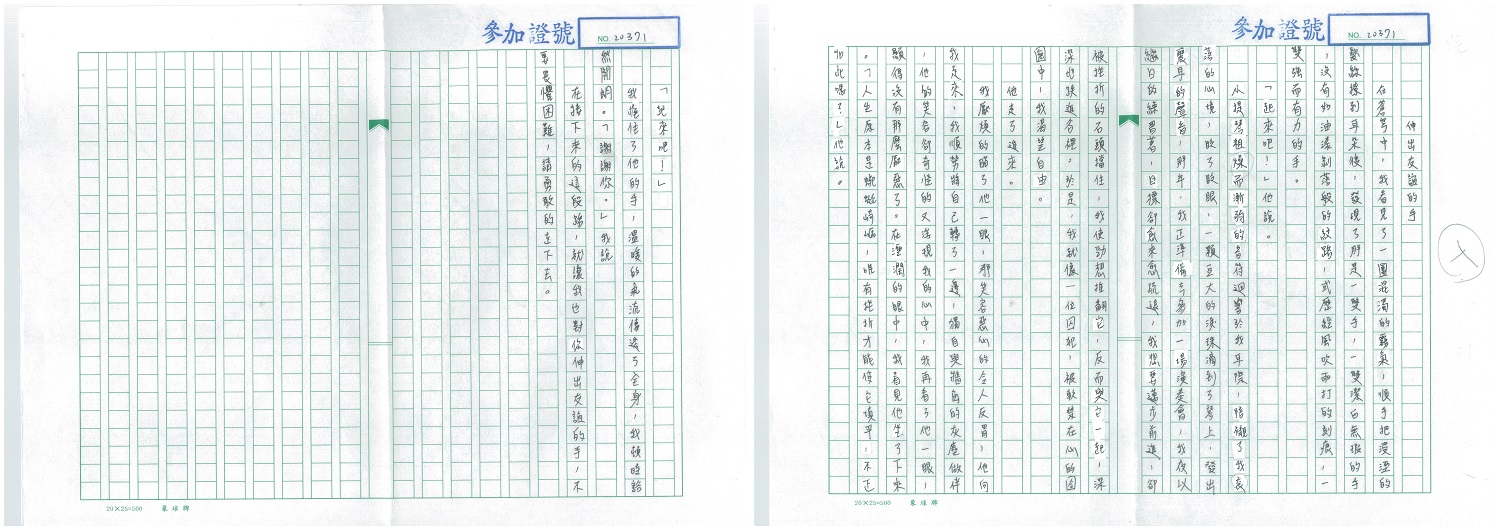 參加證號
NO. 20371
伸出友誼的手
在蒼茫中,我看見了一團混濁的霧氣,順手把浸溼的
鬢絲撩到耳朵後,發現了那是一雙手,一雙潔白無瑕的手
,沒有如油漆剝落般的紋路,或歷經風吹雨打的刻痕,一
雙強而有力的手。
「起來吧!」他說。
從提琴粗燥而漸弱的音符迴響於我耳際,暗了我哀
落的心境,眨了眨眼,一顆豆大的淚珠滴到了琴上,發出
震耳的聲音,那年,我正準備去參加一場演奏會,我夜以
繼日的練習著,目標卻愈來愈疏遠,我想要邁步前進,卻
被挫折的石頭擋住,我使勁想推翻它,反而與它一起,深
深地跌進谷裡。於是,我就像一位囚犯,被軟禁在心的囹
圄中,我渴望自由。
他走了進來。
我厭煩的瞄了他一眼,那笑容惡心的令人反胃,他向
我走來,我順勢將自己轉了一邊,獨自與牆角的灰塵做伴
,他的笑容卻奇怪的又浮現我的心中,我再看了他一眼,
顯得沒有那麼厭惡了。在溼潤的眼中,我看見他坐了下來
。「人生原本是蜿蜒崎嶇,唯有挫折才能使它填平,不正
如此嗎?」他說。
20×25=500 象球牌
參加證號
NO. 20371
「起來吧!」
我握住了他的手,溫暖的氣流傳遍了全身,我頓時豁
然開朗。「謝謝你。」我說
在接下來的這段路,就讓我也對你伸出友誼的手,不
要畏懼困難,請勇敢的走下去。
20×25=500 象球牌